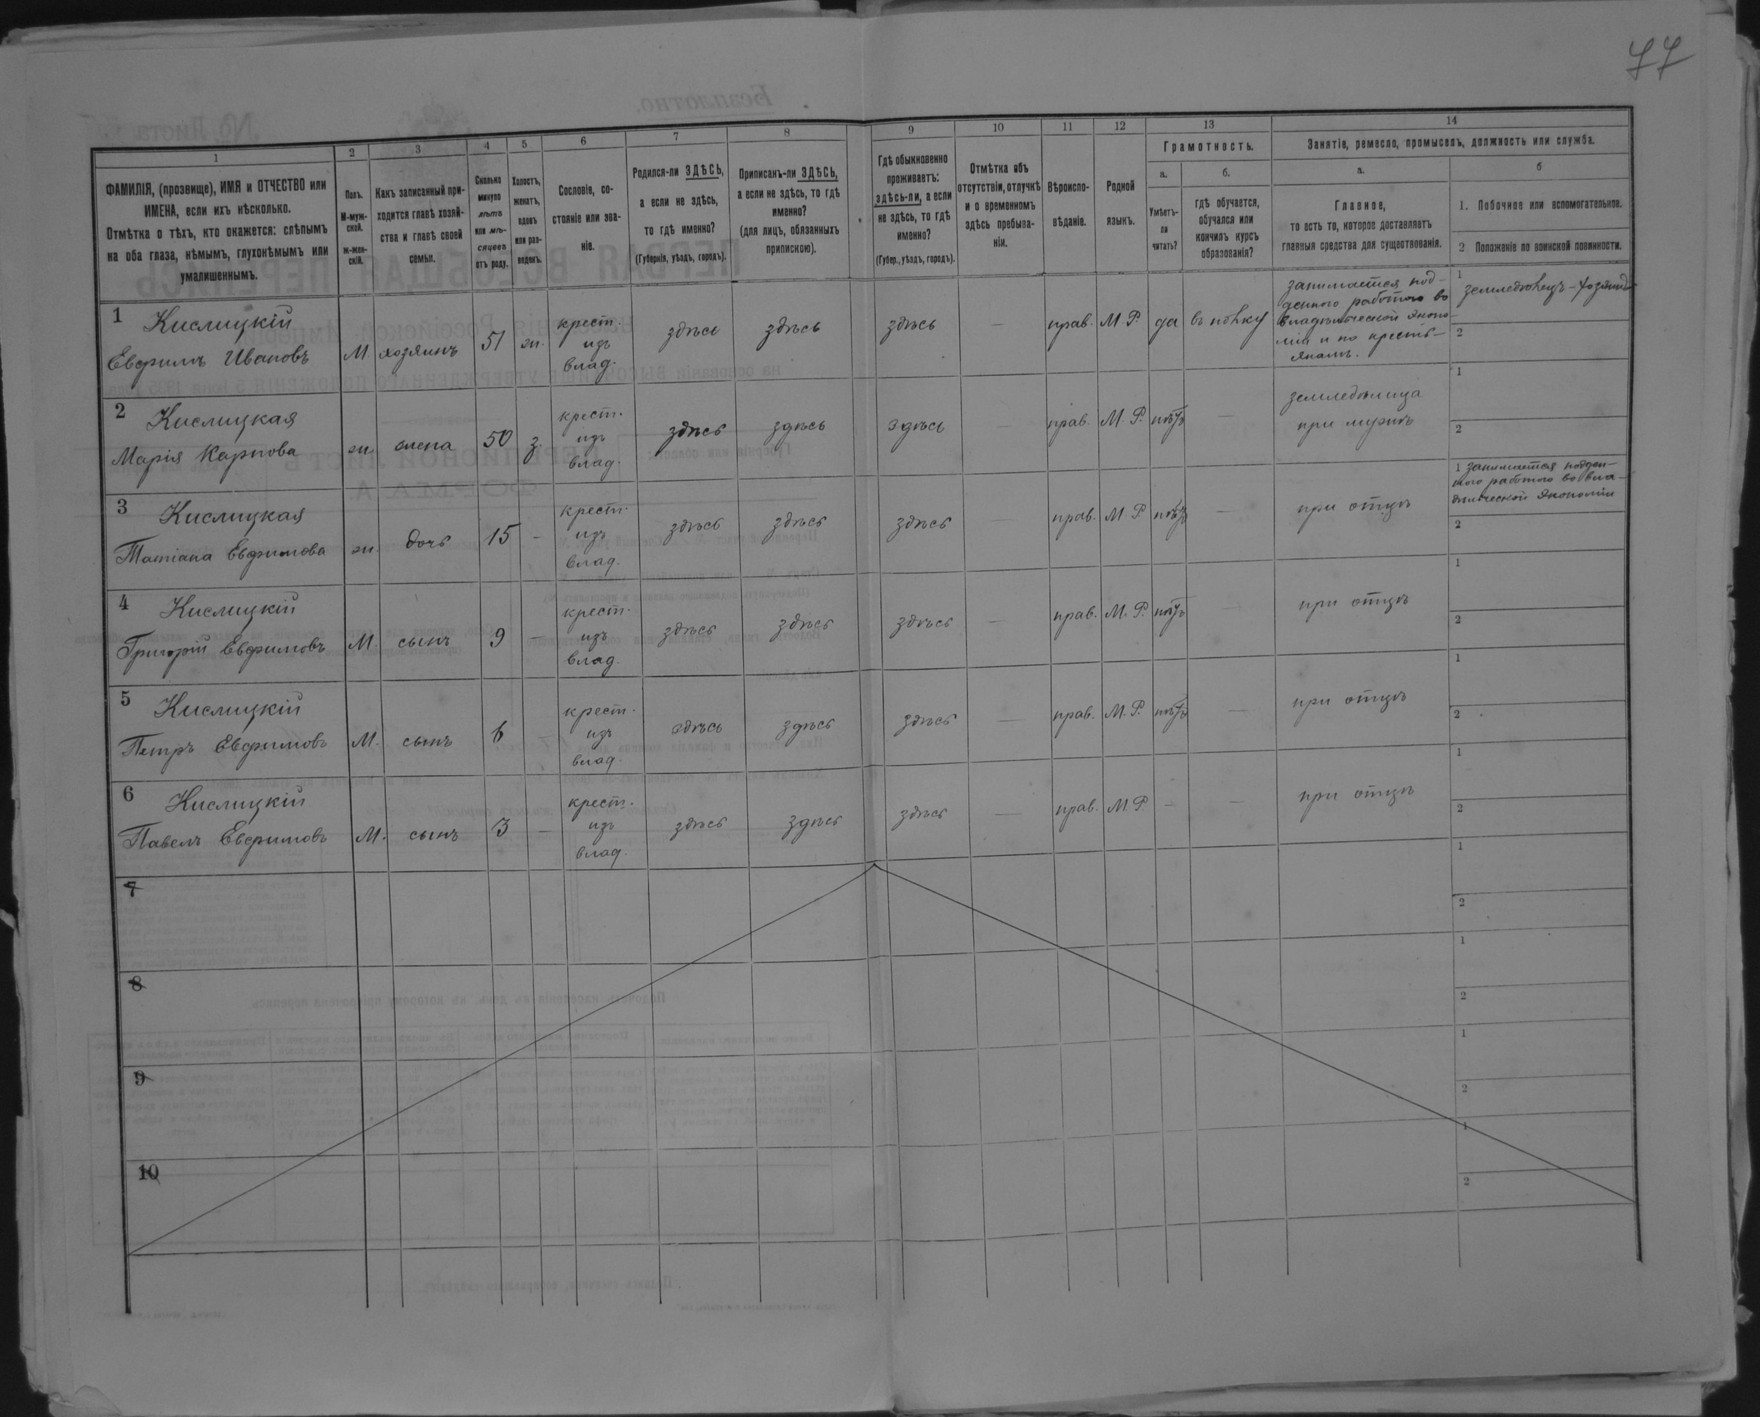 77
1 2 3 4 5 6 7 8 9 10 11 12 13 14
ФАМИЛІЯ, (прозвище), ИМЯ и ОТЧЕСТВО или
ИМЕНА, если ихъ нѣсколько.
Отмѣтка о тѣхъ, кто окажется: слѣпымъ
на оба глаза, нѣмымъ, глухонѣмымъ или
умалишеннымъ.
Полъ.
М-муж-
ской.
ж-жен-
скій.
Какъ записанный при-
ходится главѣ хозяй-
ства и главѣ своей
семьи.
Сколько
минуло
лѣтъ
или мѣ-
сяцевъ
отъ роду.
Холостъ,
женатъ,
вдовъ
или раз-
веденъ.
Сословіе, со-
стояніе или зва-
ніе.
Родился-ли ЗДѢСЬ,
а если не здѣсь,
то гдѣ именно?
(Губернія, уѣздъ, городъ).
Приписанъ-ли ЗДѢСЬ,
а если не здѣсь, то гдѣ
именно?
(для лицъ, обязанныхъ
припискою).
Гдѣ обыкновенно
проживаетъ:
здѣсь-ли, а если
не здѣсь, то гдѣ
именно?
(Губер., уѣздъ, городъ).
Отмѣтка объ
отсутствіи, отлучкѣ
и о временномъ
здѣсь пребыва-
ніи.
Вѣроиспо-
вѣданіе.
Родной
языкъ.
Грамотность.
а.
Умѣетъ-
ли
читать?
б.
Гдѣ обучается,
обучался или
кончилъ курсъ
образованія?
Занятіе, ремесло, промыселъ, должность или служба.
а.
Главное,
то есть то, которое доставляетъ
главныя средства для существованія.
б
1. Побочное или вспомогательное.
2 Положеніе по воинской повинности.
1 Кислицкій
Евфимъ Ивановъ
М хозяинъ 51 ж.
крест.
изъ
влад.
здѣсь здѣсь здѣсь — прав. М.Р. да въ полку
занимается под-
денного работого во
владѣльческой эконо-
міи и по крестья-
янамъ.
1 земледѣлецъ-хозяинъ
2
2 Кислицкая
Марія Карпова
ж. жена 50 з.
крест.
изъ
влад.
здѣсь здѣсь здѣсь — прав. М.Р. нѣтъ —
земледѣлица
при мужѣ
1
2
3 Кислицкая
Татіана Евфимова
ж. дочь 15 —
крест.
изъ
влад.
здѣсь здѣсь здѣсь — прав. М.Р. нѣтъ —
при отцѣ
1 занимается подден-
ного работого во вла-
дѣльческой экономіи
2
4 Кислицкій
Григорій Евфимовъ
М. сынъ 9 —
крест.
изъ
влад.
здѣсь здѣсь здѣсь — прав. М.Р. нѣтъ —
при отцѣ
1
2
5 Кислицкій
Петръ Евфимовъ
М. сынъ 6 —
крест.
изъ
влад.
здѣсь здѣсь здѣсь — прав. М.Р. нѣтъ —
при отцѣ
1
2
6 Кислицкій
Павелъ Евфимовъ
М. сынъ 3 —
крест.
изъ
влад.
здѣсь здѣсь здѣсь — прав. М.Р. — —
при отцѣ
1
2
7
1
2
8
1
2
9
1
2
10
1
2